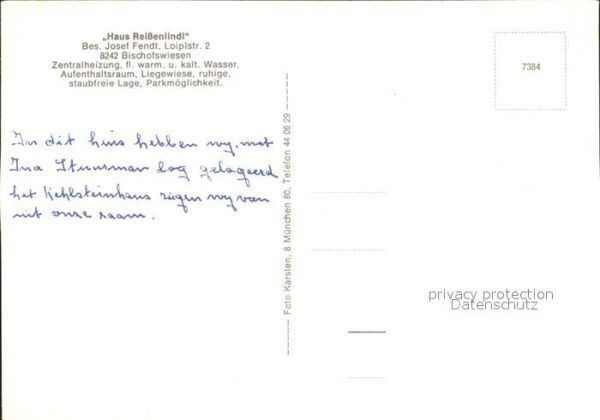 „Haus Reißenlindl"
Bes. Josef Fendt, Loiplstr. 2
8242 Bischofswiesen
Zentralheizung, fl. warm. u. kalt. Wasser,
Aufenthaltsraum, Liegewiese, ruhige,
staubfreie Lage, Parkmöglichkeit.
7384
In dit huis hebben wy. met
Ina Stuurman log gelogeerd
het Kehlsteinhaus zagen wy van
uit onze raam.
Foto Karsten, 8 München 80, Telefon 44 06 29
privacy protection
Datenschutz